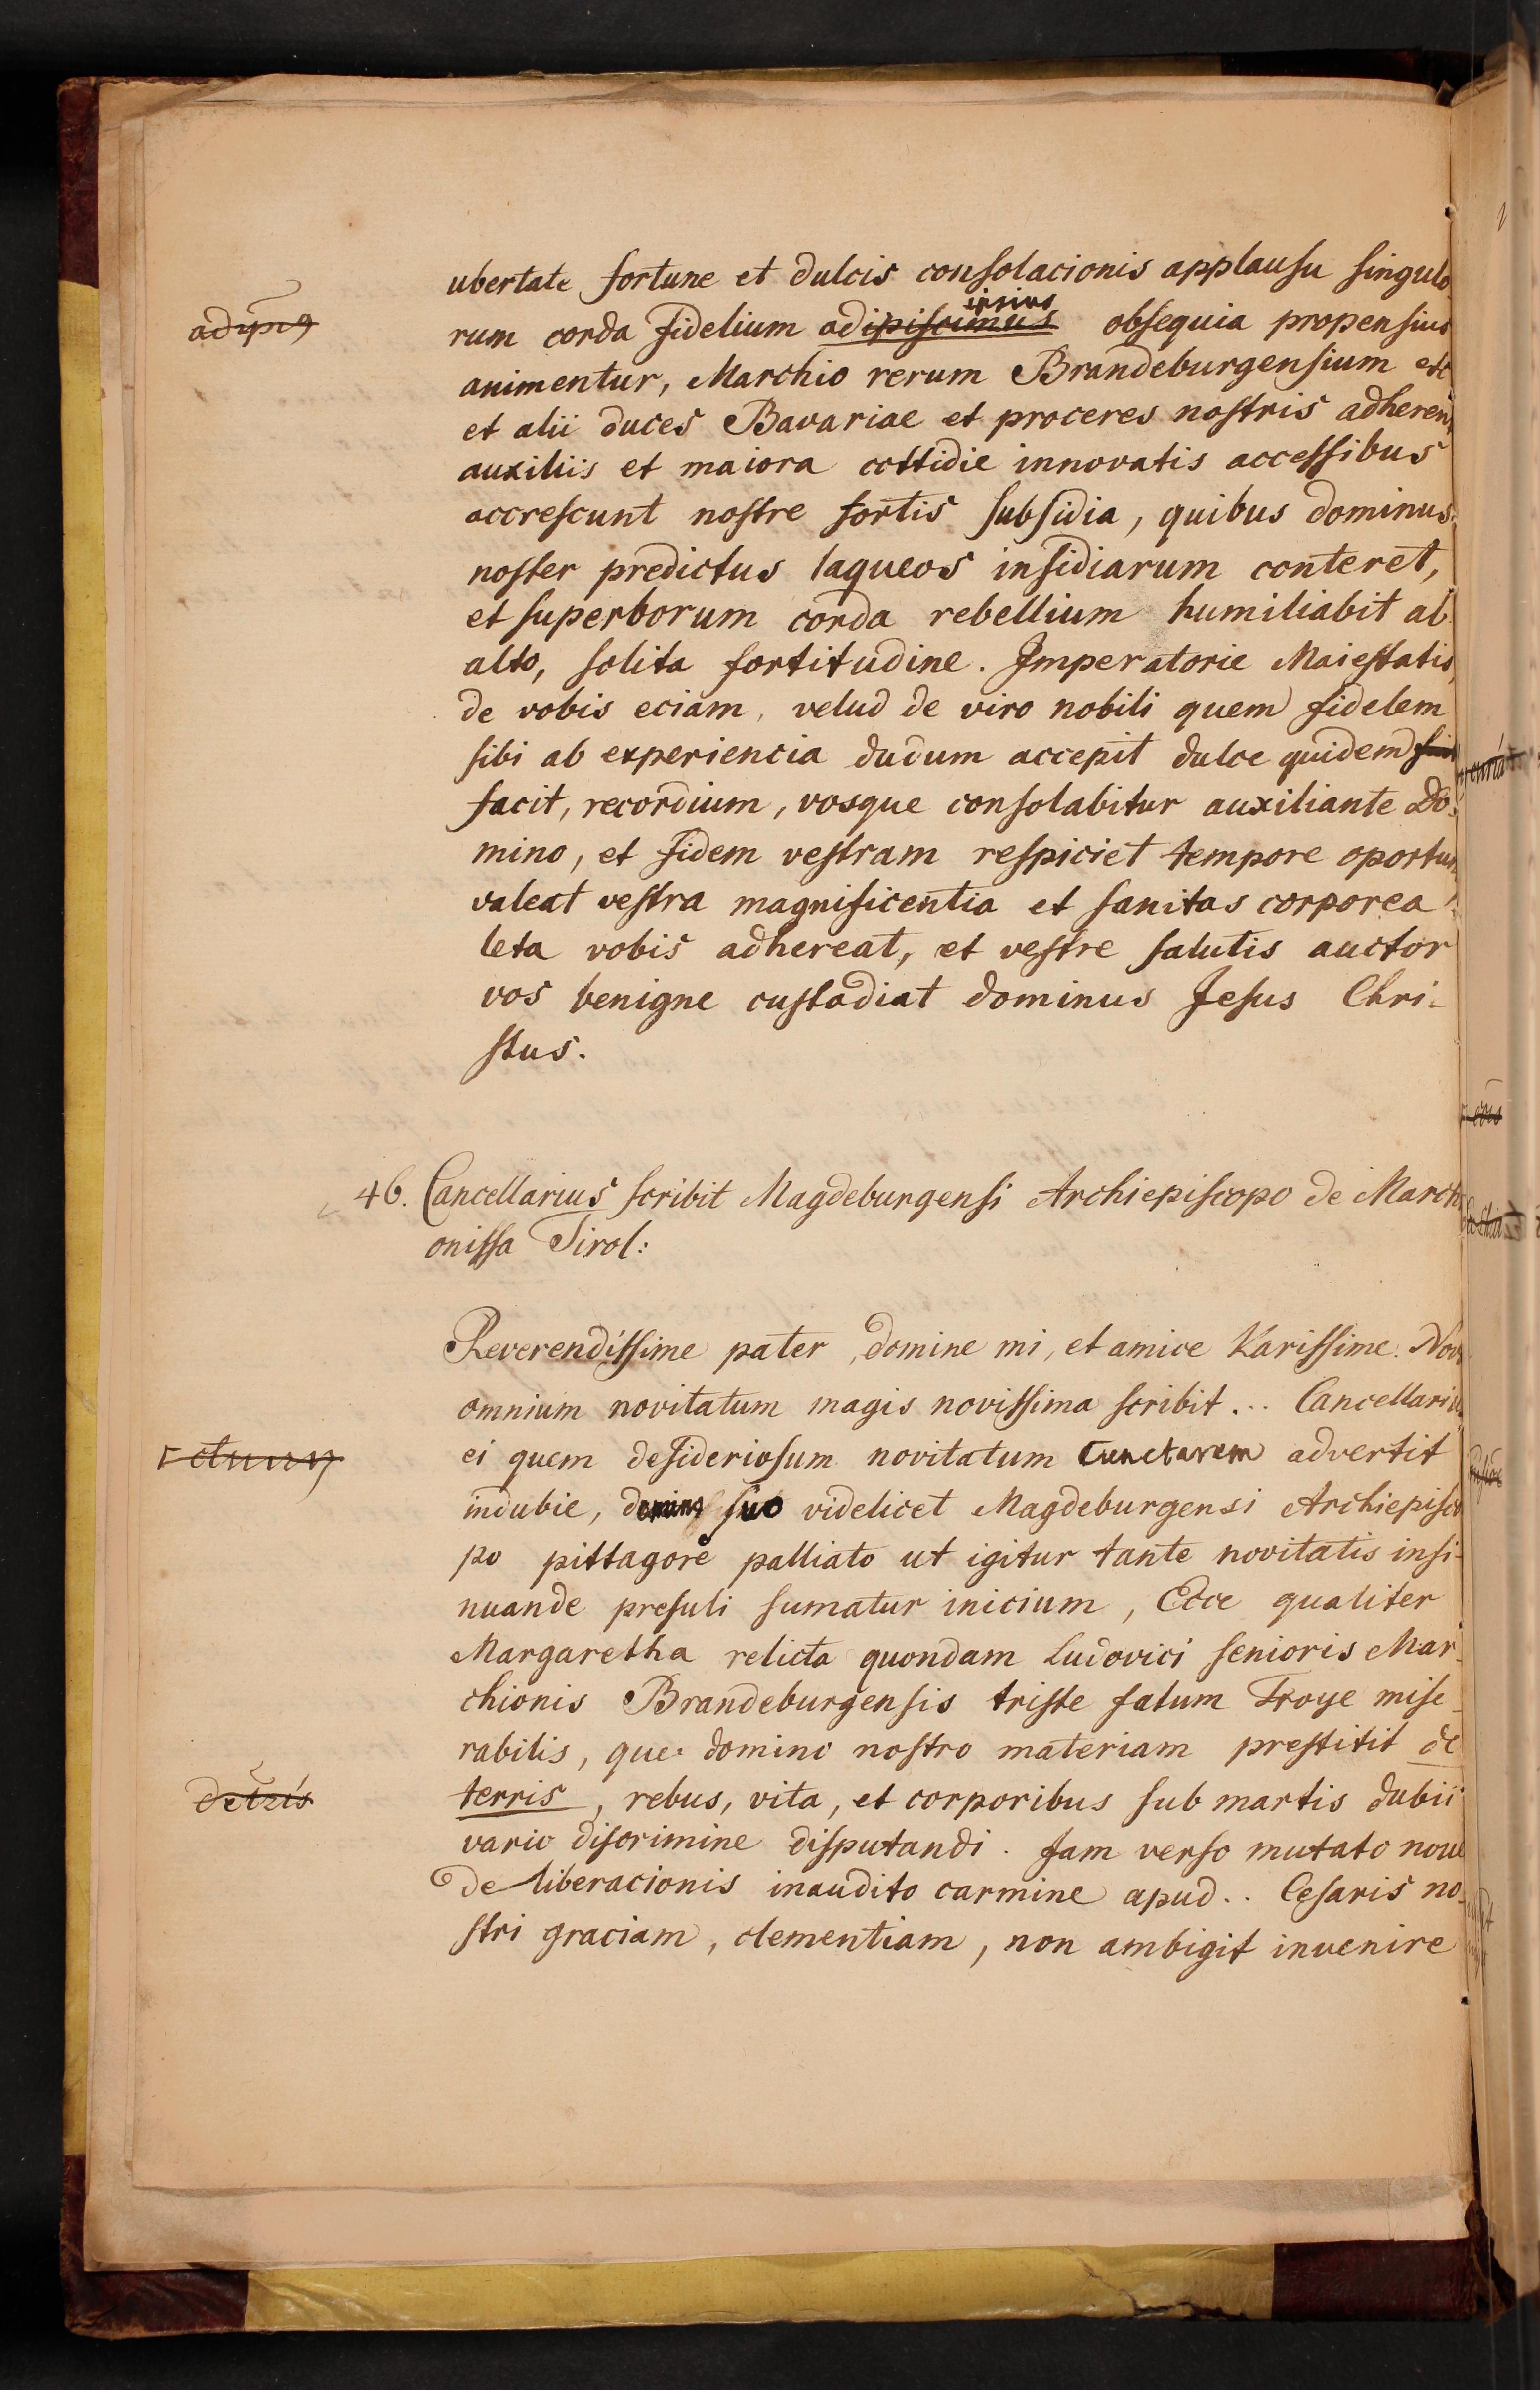 ubertate fortune et dulcis consolacionis applausu singulo-
rum corda fidelium adipiscimus ipsius obsequia propensius
animentur, Marchio rerum Brandeburgensium etc
et alii duces Bavariae et proceres nostris adherent
auxiliis et maiora cottidie innovatis accessibus
accrescunt nostre sortis subsidia, quibus dominus
noster predictus laqueos insidiarum conteret,
et superborum corda rebellium humiliabit ab
alto, solita fortitudine. Imperatorie Maiestatis,
de vobis eciam, velud de viro nobili quem fidelem
sibi ab experiencia dudum accepit dulce quidem
facit, recordium, vosque consolabitur auxiliante Do-
mino, et fidem vestram respiciet tempore oportun
valeat vestra magnificentia et sanitas corporea
leta vobis adhereat, et vestre salutis auctor
vos benigne custodiat dominus Jesus Chri-
stus.
46. Cancellarius scribit Magdeburgensi Archiepiscopo de March
onissa Tirol:
Reverendissime pater, domine mi, et amice Karissime. Nova
omnium novitatum magis novissima scribit... Cancellarius
ei quem desideriosum novitatum Cunctarem advertit
indubie, suo videlicet Magdeburgensi Archiepisco
po pittagore palliato ut igitur tante novitatis insi-
nuande presuli sumatur inicium, Ecce qualiter
Margaretha relicta quondam Ludovici senioris Mar-
chionis Brandeburgensis triste fatum Troye mise-
rabilis, que domino nostro materiam prestitit de
terris, rebus, vita, et corporibus sub martis dubii
vario discrimine disputandi. Jam verso mutato noue
deliberacionis inaudito carmine apud.. Cesaris no-
stri graciam, clementiam, non ambigit invenire